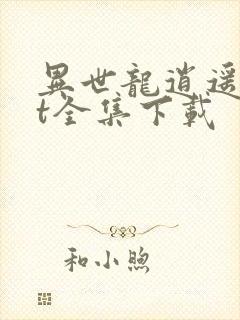 異世龍逍遥
t全集下載
和小煦